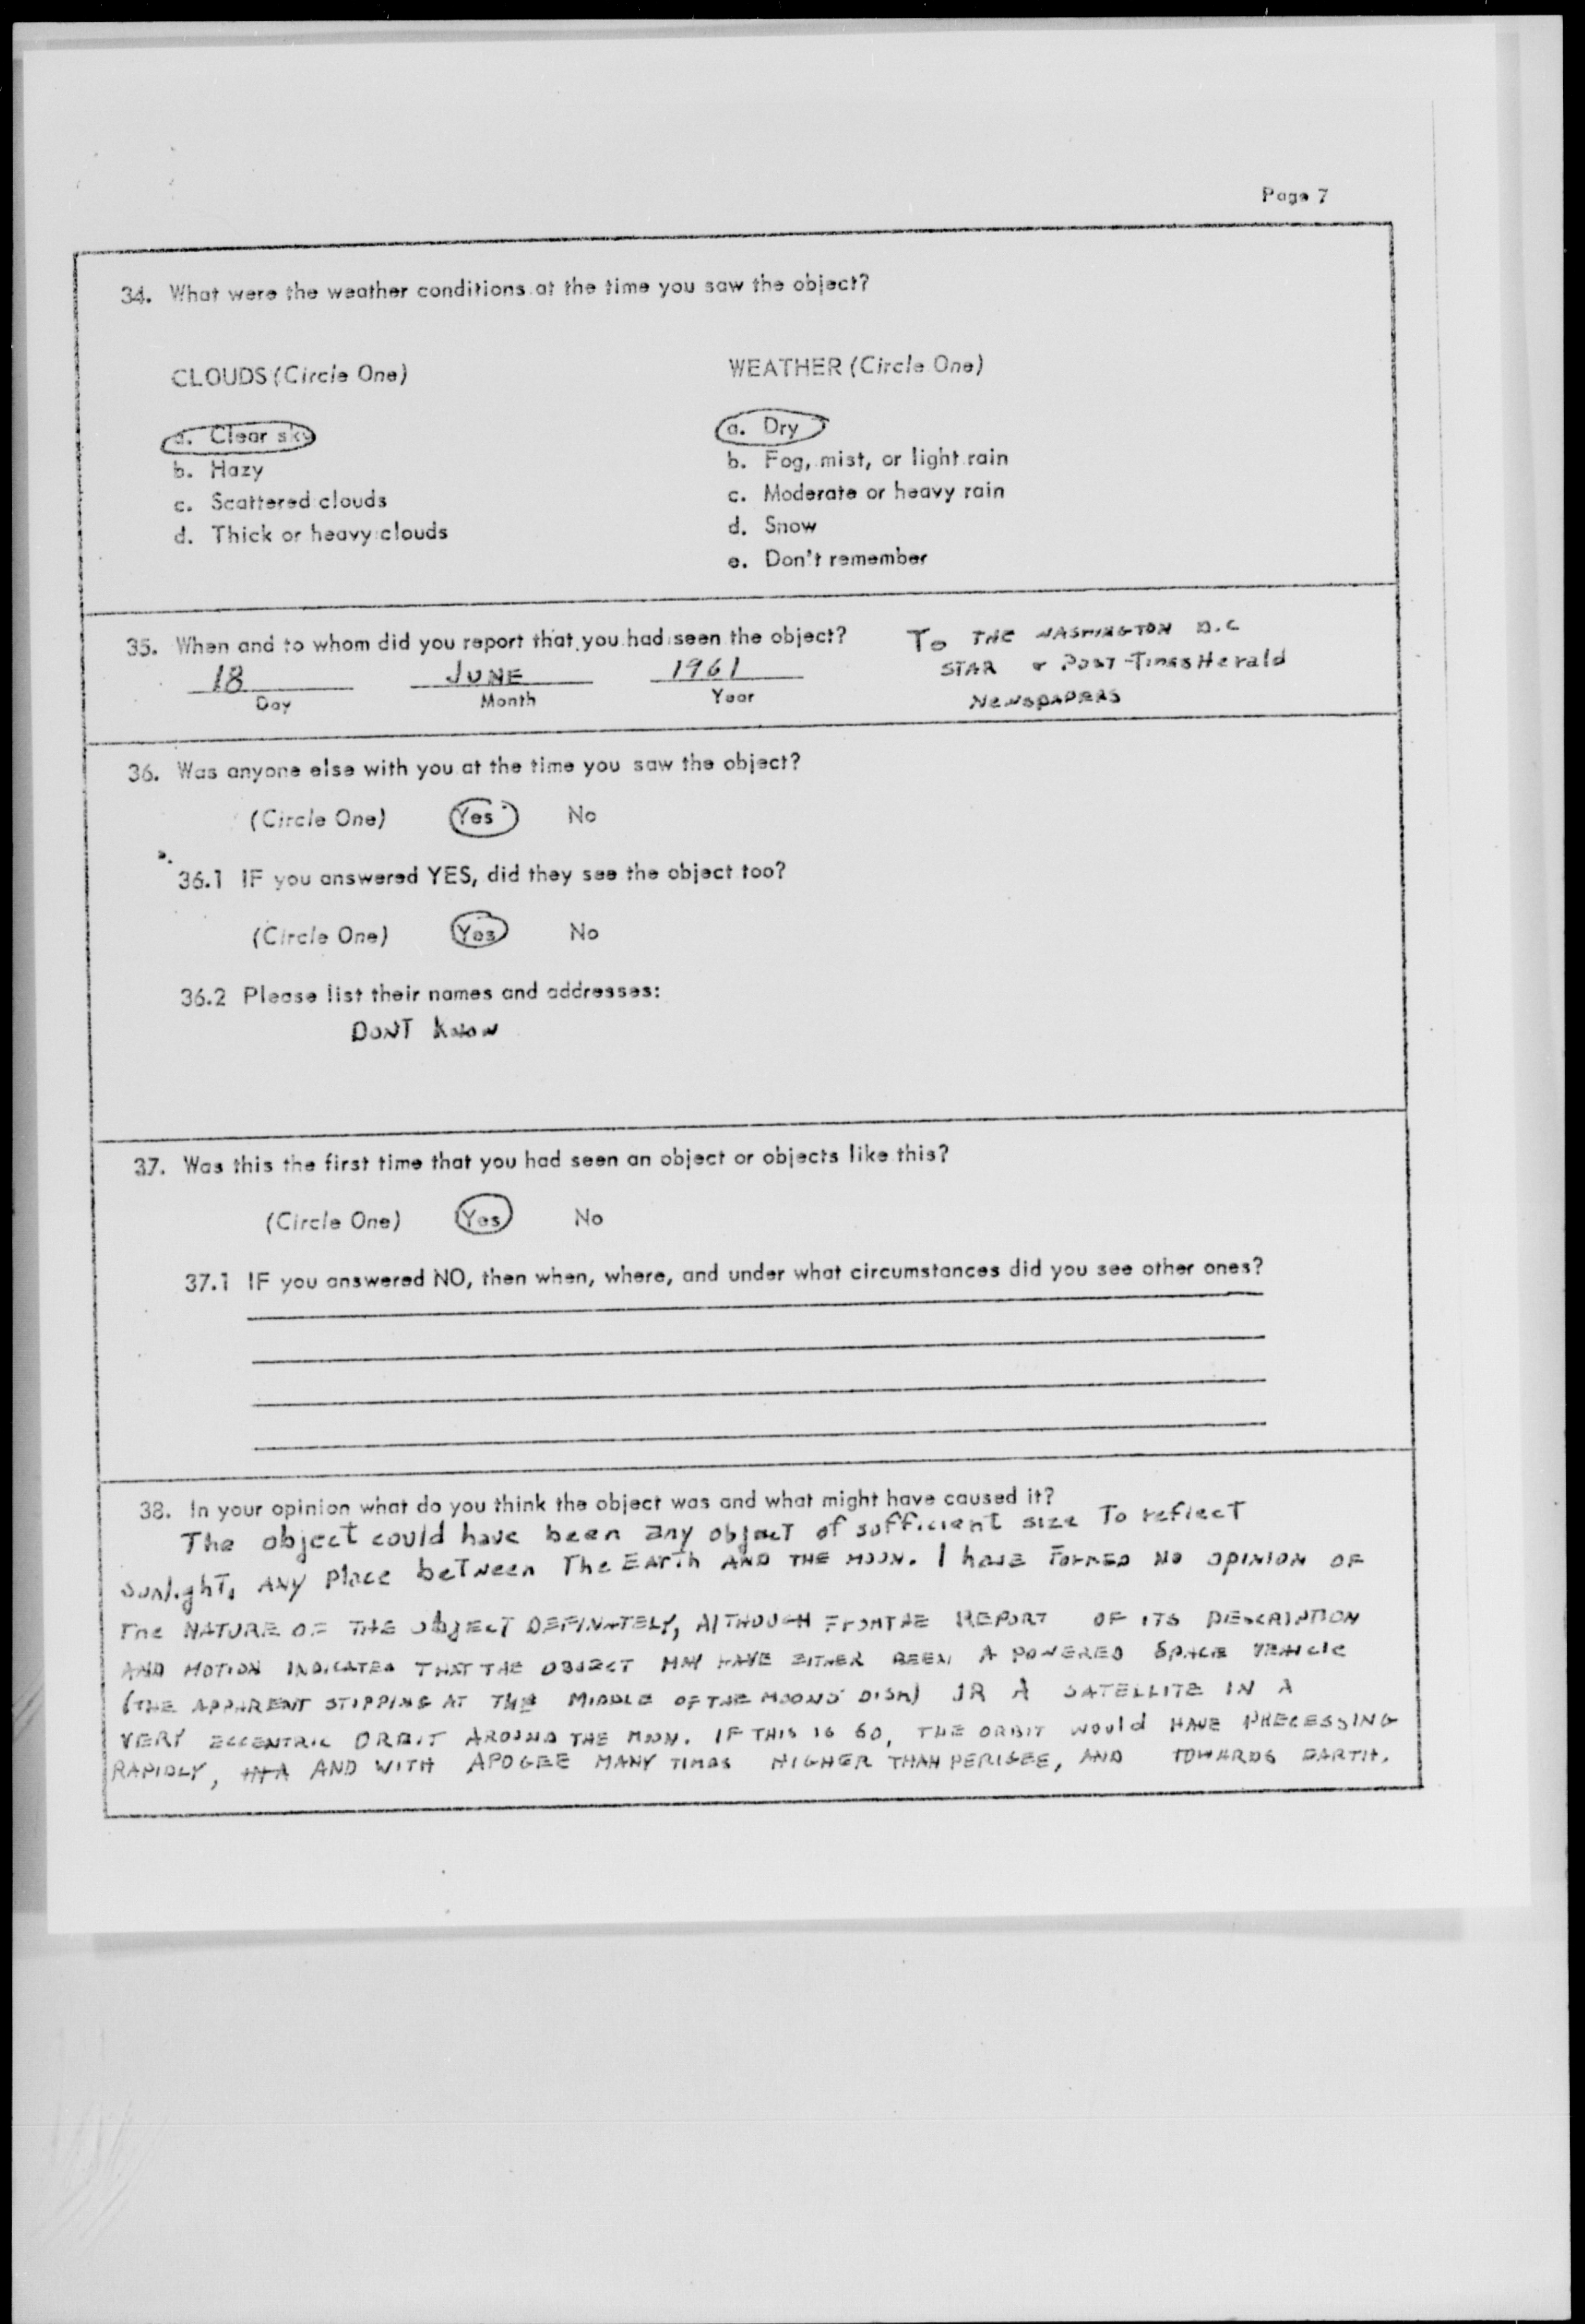 Page 7
34. What were the weather conditions at the time you saw the object?
CLOUDS (Circle One)
a. Clear sky
b. Hazy
c. Scattered clouds
d. Thick or heavy clouds
WEATHER (Circle One)
a. Dry
b. Fog, mist, or light rain
c. Moderate or heavy rain
d. Snow
e. Don't remember
35. When and to whom did you report that you had seen the object?
18 JUNE 1961
Day Month Year
To THE WASHINGTON D.C
STAR & POST-TIMES Herald
NEWSPAPERS
36. Was anyone else with you at the time you saw the object?
(Circle One) Yes No
36.1 IF you answered YES, did they see the object too?
(Circle One) Yes No
36.2 Please list their names and addresses:
DONT KNOW
37. Was this the first time that you had seen an object or objects like this?
(Circle One) Yes No
37.1 IF you answered NO, then when, where, and under what circumstances did you see other ones?
38. In your opinion what do you think the object was and what might have caused it?
The object could have been any object of sufficient size To reflect
sunlight, ANY Place beTween The EArTh AND THE MOON. I have FORMED NO OPINION OF
The NATURE OF THE object DEFINATELY, AlTHOUGH FROM THE REPORT OF ITS DESCRIPTION
AND MOTION INDICATED THAT THE OBJECT MAY HAVE EITHER BEEN A POWERED SPACE VEHICLE
(THE APPARENT STOPPING AT THE MIDDLE OF THE MOONS DISK) OR A SATELLITE IN A
VERY ECCENTRIC ORBIT AROUND THE MOON. IF THIS IS SO, THE ORBIT would HAVE PRECESSING
RAPIDLY, IN A AND WITH APOGEE MANY TIMES HIGHER THAN PERIGEE, AND TOWARDS EARTH.